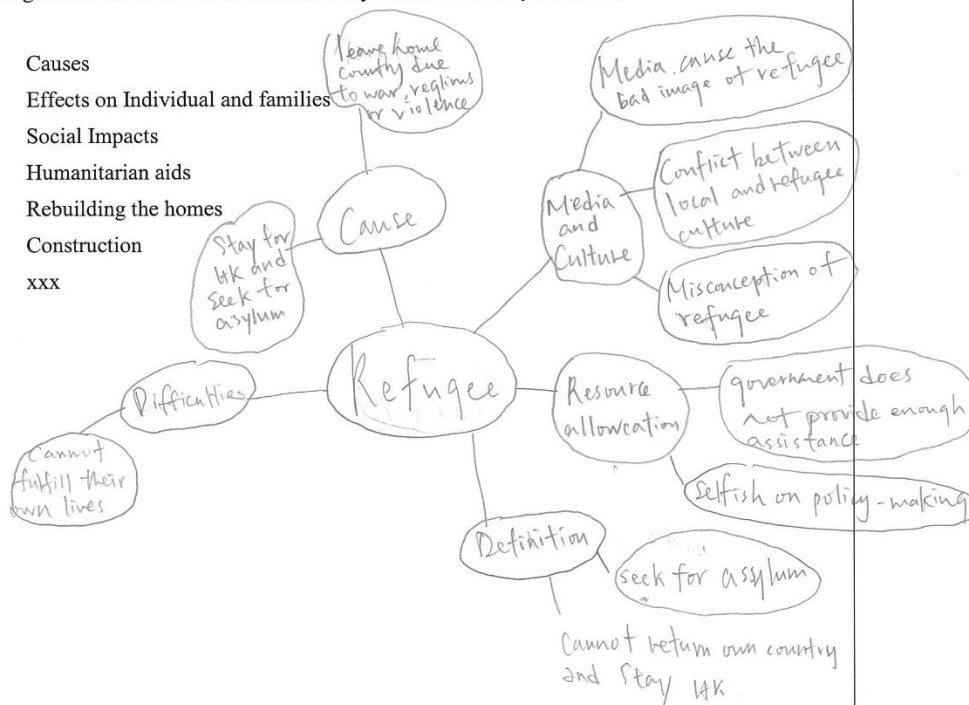 Causes
Effects on Individual and families
Social Impacts
Humanitarian aids
Rebuilding the homes
Construction
xxx
leave home
country due
to war, reglions
or violence
Cause
Stay for
HK and
seek for
asylum
Media cause the
bad image of refugee
Media
and
Culture
Conflict between
local and refugee
culture
Misconception of
refugee
Refugee
Difficulties
Cannot
fulfill their
own lives
Resource
allowcation
government does
not provide enough
assistance
Selfish on policy-making
Definition
seek for assylum
Cannot return own country
and Stay HK